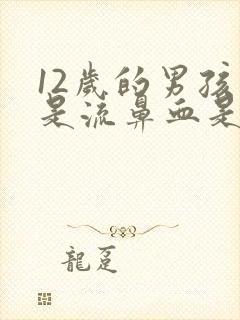 12岁的男孩
是流鼻血是
龍迳